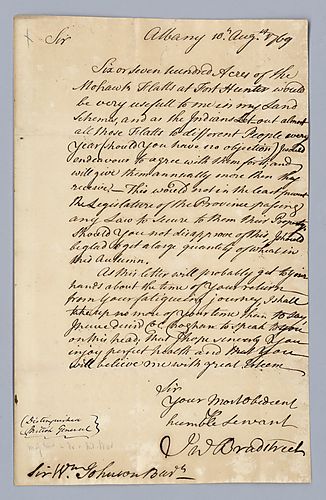 Sir Albany 10th Augst 1769
Six or seven hundred Acres of the
Mohawk Flatts at Fort Hunter would
be very usefull to me in my Land
Scheme, and as the Indians Let out almost
all those Flatts to different People every
Year (should You have no objection) I would
endeavour to agree with them for it, and
will give them annually more than they
receive — This would not in the least prevent
the Legislature of the Province passing
any Law to secure to them their Property
Should You not disapprove of this I should
be glad to get a large quantity of wheat in
this Autumn.
As this letter will probably get to your
hands about the time of Your return
from Your fatigueing journey, I shall
take up no more of your time than to say
I have desired C. Croghan to speak to you
on this head, that I hope sincerely You
enjoy perfect health and that You
will believe me with great Esteem
Sir
Your Most Obedient
humble Servant
Jno Bradstreet
(Distinguished
British General)
Sir Wm Johnson Bart